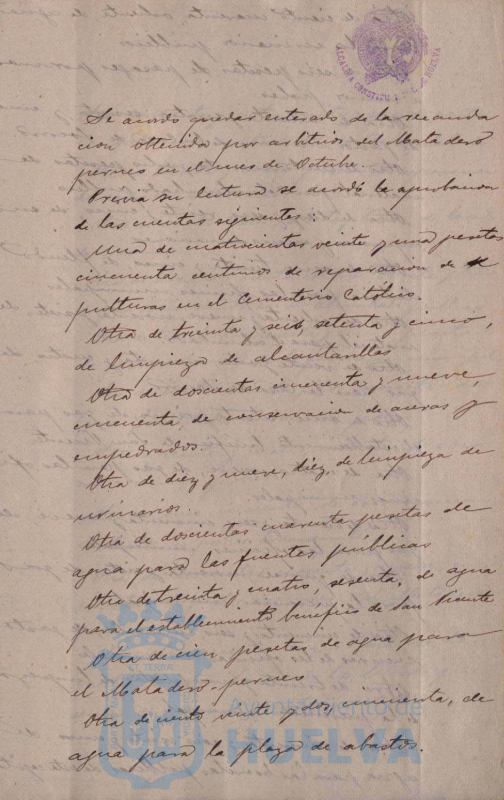 ALCALDIA CONSTITU
DE HUELVA
Se acordó quedar enterado de la recauda
cion obtenida por arbitrios del Matadero
pernes en el mes de Octubre.
Previa su lectura se acordó la aprobacion
de las cuentas siguientes:
Una de cuatrocientas veinte y una pesetas
cincuenta centimos de reparacion de se
pulturas en el Cementerio Católico.
Otra de treinta y seis, setenta y cinco,
de limpieza de alcantarillas
Otra de doscientas cincuenta y nueve,
cincuenta, de conservacion de aceras y
empedrados.
Otra de diez y nueve, diez, de limpieza de
urinarios.
Otra de doscientas cuarenta pesetas de
agua para las fuentes públicas
Otra de treinta y cuatro, sesenta, de agua
para el establecimiento benéfico de San Vicente
Otra de cien pesetas de agua para
el Matadero-pernes
Otra de ciento veinte y dos, cincuenta, de
agua para la plaza de abastos.
Ayuntamiento de
HUELVA